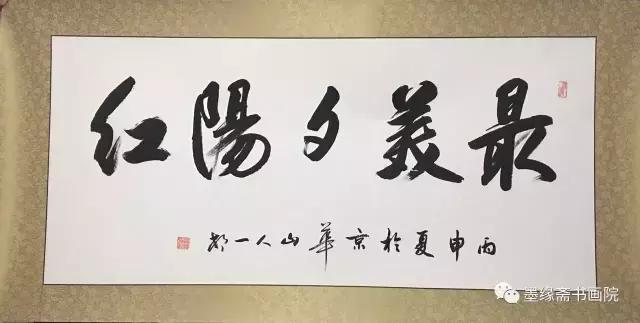 最美夕陽红
丙申夏於京華山人一郝
墨缘斋书画院